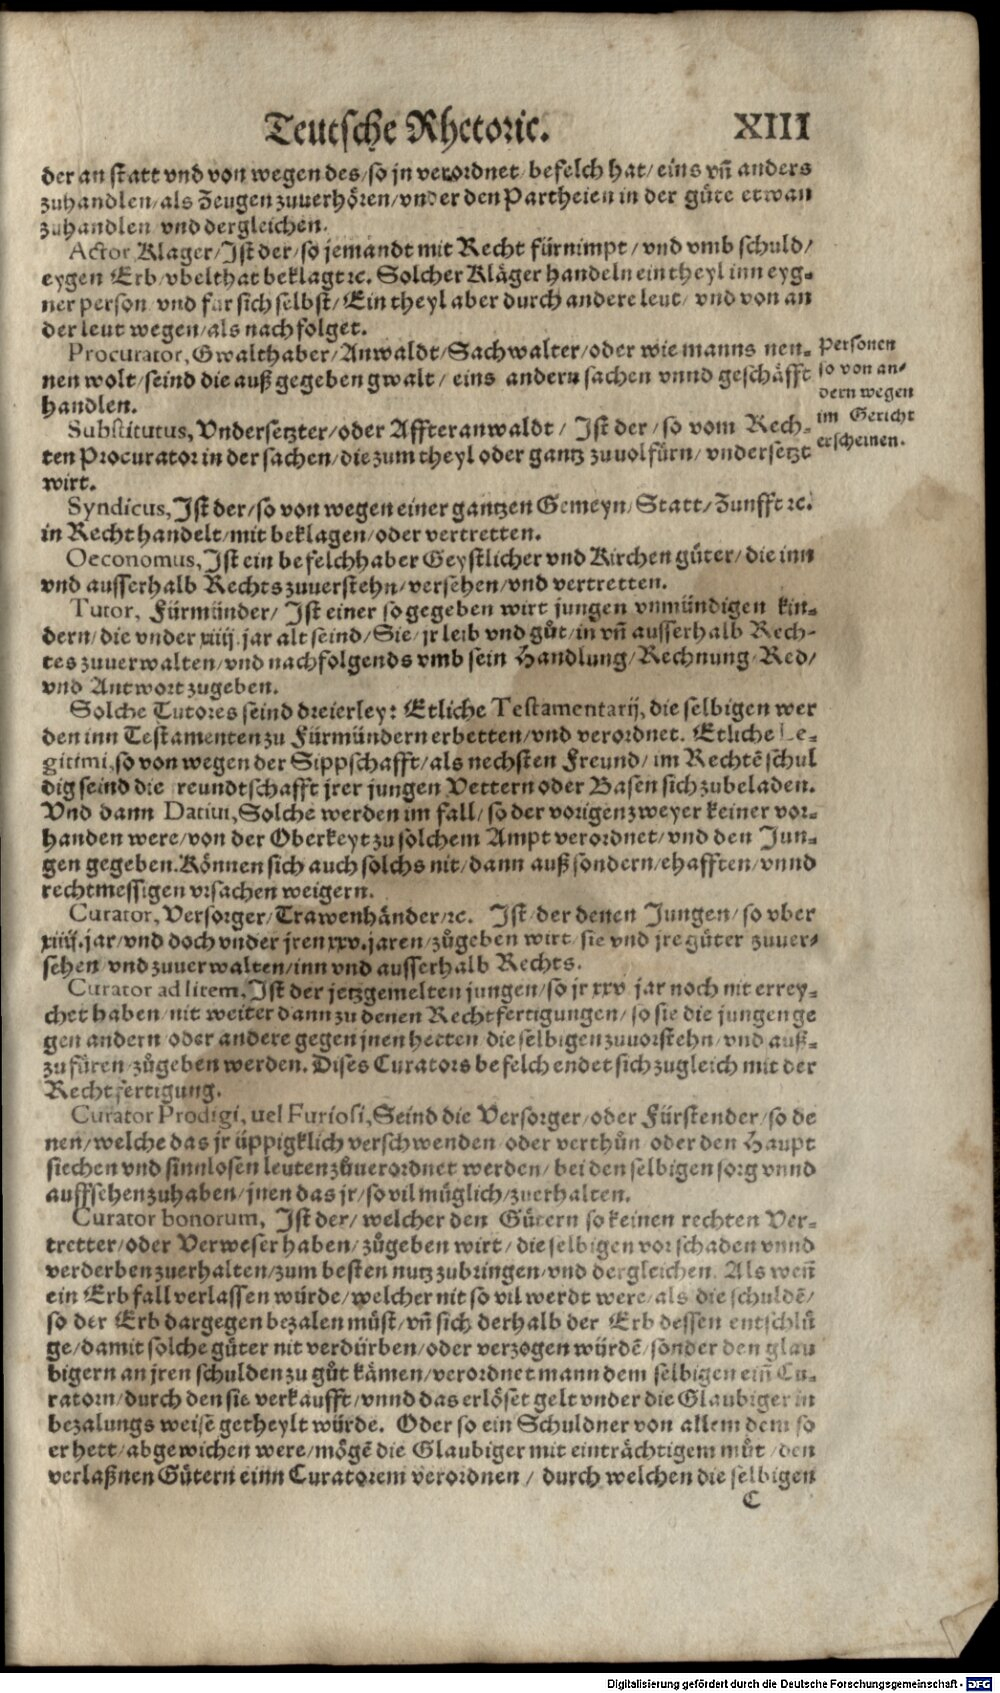 Teutsche Rhetoric. XIII
der an statt vnd von wegen des/so jn verordnet/befelch hat/eins vñ anders
zuhandlen/als Zeugen zuuerhören/vnder den Partheien in der güte etwan
zuhandlen/vnd dergleichen.
Actor, Klager/Ist der/so jemandt mit Recht fürnimpt/vnd vmb schuld/
eygen Erb/vbelthat beklagt ꝛc. Solcher Kläger handeln ein theyl inn eyg-
ner person vnd für sich selbst/Ein theyl aber durch andere leut/vnd von an
der leut wegen/als nachfolget.
Procurator, Gwalthaber/Anwaldt/Sachwalter/oder wie manns nen-
nen wolt/seind die auß gegeben gwalt/eins andern sachen vnnd geschäfft
handlen.
Personen
so von an-
dern wegen
im Gericht
erscheinen.
Substitutus, Vndersetzter/oder Affteranwaldt/Ist der/so vom Rech-
ten Procurator in der sachen/die zum theyl oder gantz zuuolfürn/vndersetzt
wirt.
Syndicus, Ist der/so von wegen einer gantzen Gemeyn/Statt/Zunfft ꝛc.
in Recht handelt/mit beklagen/oder vertretten.
Oeconomus, Ist ein befelchhaber Geystlicher vnd Kirchen güter/die inn
vnd ausserhalb Rechts zuuerstehn/versehen/vnd vertretten.
Tutor, Fürmünder/Ist einer so gegeben wirt jungen vnmündigen kin-
dern/die vnder xiiij. jar alt seind/Sie/jr leib vnd gůt/in vñ ausserhalb Rech-
tes zuuerwalten/vnd nachfolgends vmb sein Handlung/Rechnung/Red/
vnd Antwort zugeben.
Solche Tutores seind dreierley: Etliche Testamentarij, die selbigen wer
den inn Testamenten zu Fürmündern erbetten/vnd verordnet. Etliche Le-
gitimi, so von wegen der Sippschafft/als nechsten Freund/im Rechtẽ schul
dig seind die freundtschafft jrer jungen Vettern oder Basen sich zubeladen.
Vnd dann Datiui, Solche werden im fall/so der vorigen zweyer keiner vor-
handen were/von der Oberkeyt zu solchem Ampt verordnet/vnd den Jun-
gen gegeben. Können sich auch solchs nit/dann auß sondern/ehafften/vnnd
rechtmessigen vrsachen weigern.
Curator, Versorger/Trawenhänder/ꝛc. Ist/der denen Jungen/so vber
xiiij. jar/vnd doch vnder jren xxv. jaren/zůgeben wirt/sie vnd jre güter zuuer-
sehen/vnd zuuerwalten/inn vnd ausserhalb Rechts.
Curator ad litem, Ist der jetzgemelten jungen/so jr xxv jar noch nit errey-
chet haben/nit weiter dann zu denen Rechtfertigungen/so sie die jungen ge
gen andern/oder andere gegen jnen hetten/die selbigen zuuorstehn/vnd auß-
zufüren/zůgeben werden. Dises Curators befelch endet sich zugleich mit der
Rechtfertigung.
Curator Prodigi, uel Furiosi, Seind die Versorger/oder Fürstender/so de
nen/welche das jr üppigklich verschwenden/oder verthůn/oder den Haupt
siechen vnd sinnlosen leuten zůuerordnet werden/bei den selbigen sorg vnnd
auffsehen zuhaben/jnen das jr/so vil müglich/zuerhalten.
Curator bonorum, Ist der/welcher den Gütern so keinen rechten Ver-
tretter/oder Verweser haben/zůgeben wirt/die selbigen vor schaden vnnd
verderben zuerhalten/zum besten nutz zubringen/vnd dergleichen. Als weñ
ein Erbfall verlassen würde/welcher nit so vil werdt were/als die schuldẽ/
so der Erb dargegen bezalen müst/vñ sich derhalb der Erb dessen entschlů
ge/damit solche güter nit verdürben/oder verzogen würdẽ/sonder den glau
bigern an jren schulden zu gůt kämen/verordnet mann dem selbigen eiñ Cu-
ratorn/durch den sie verkaufft/vnnd das erlöset gelt vnder die Glaubiger in
bezalungs weise getheylt würde. Oder so ein Schuldner von allem dem so
er hett/abgewichen were/mögẽ die Glaubiger mit einträchtigem můt/den
verlaßnen Gütern einn Curatorem verordnen/durch welchen die selbigen
C
Digitalisierung gefördert durch die Deutsche Forschungsgemeinschaft - DFG